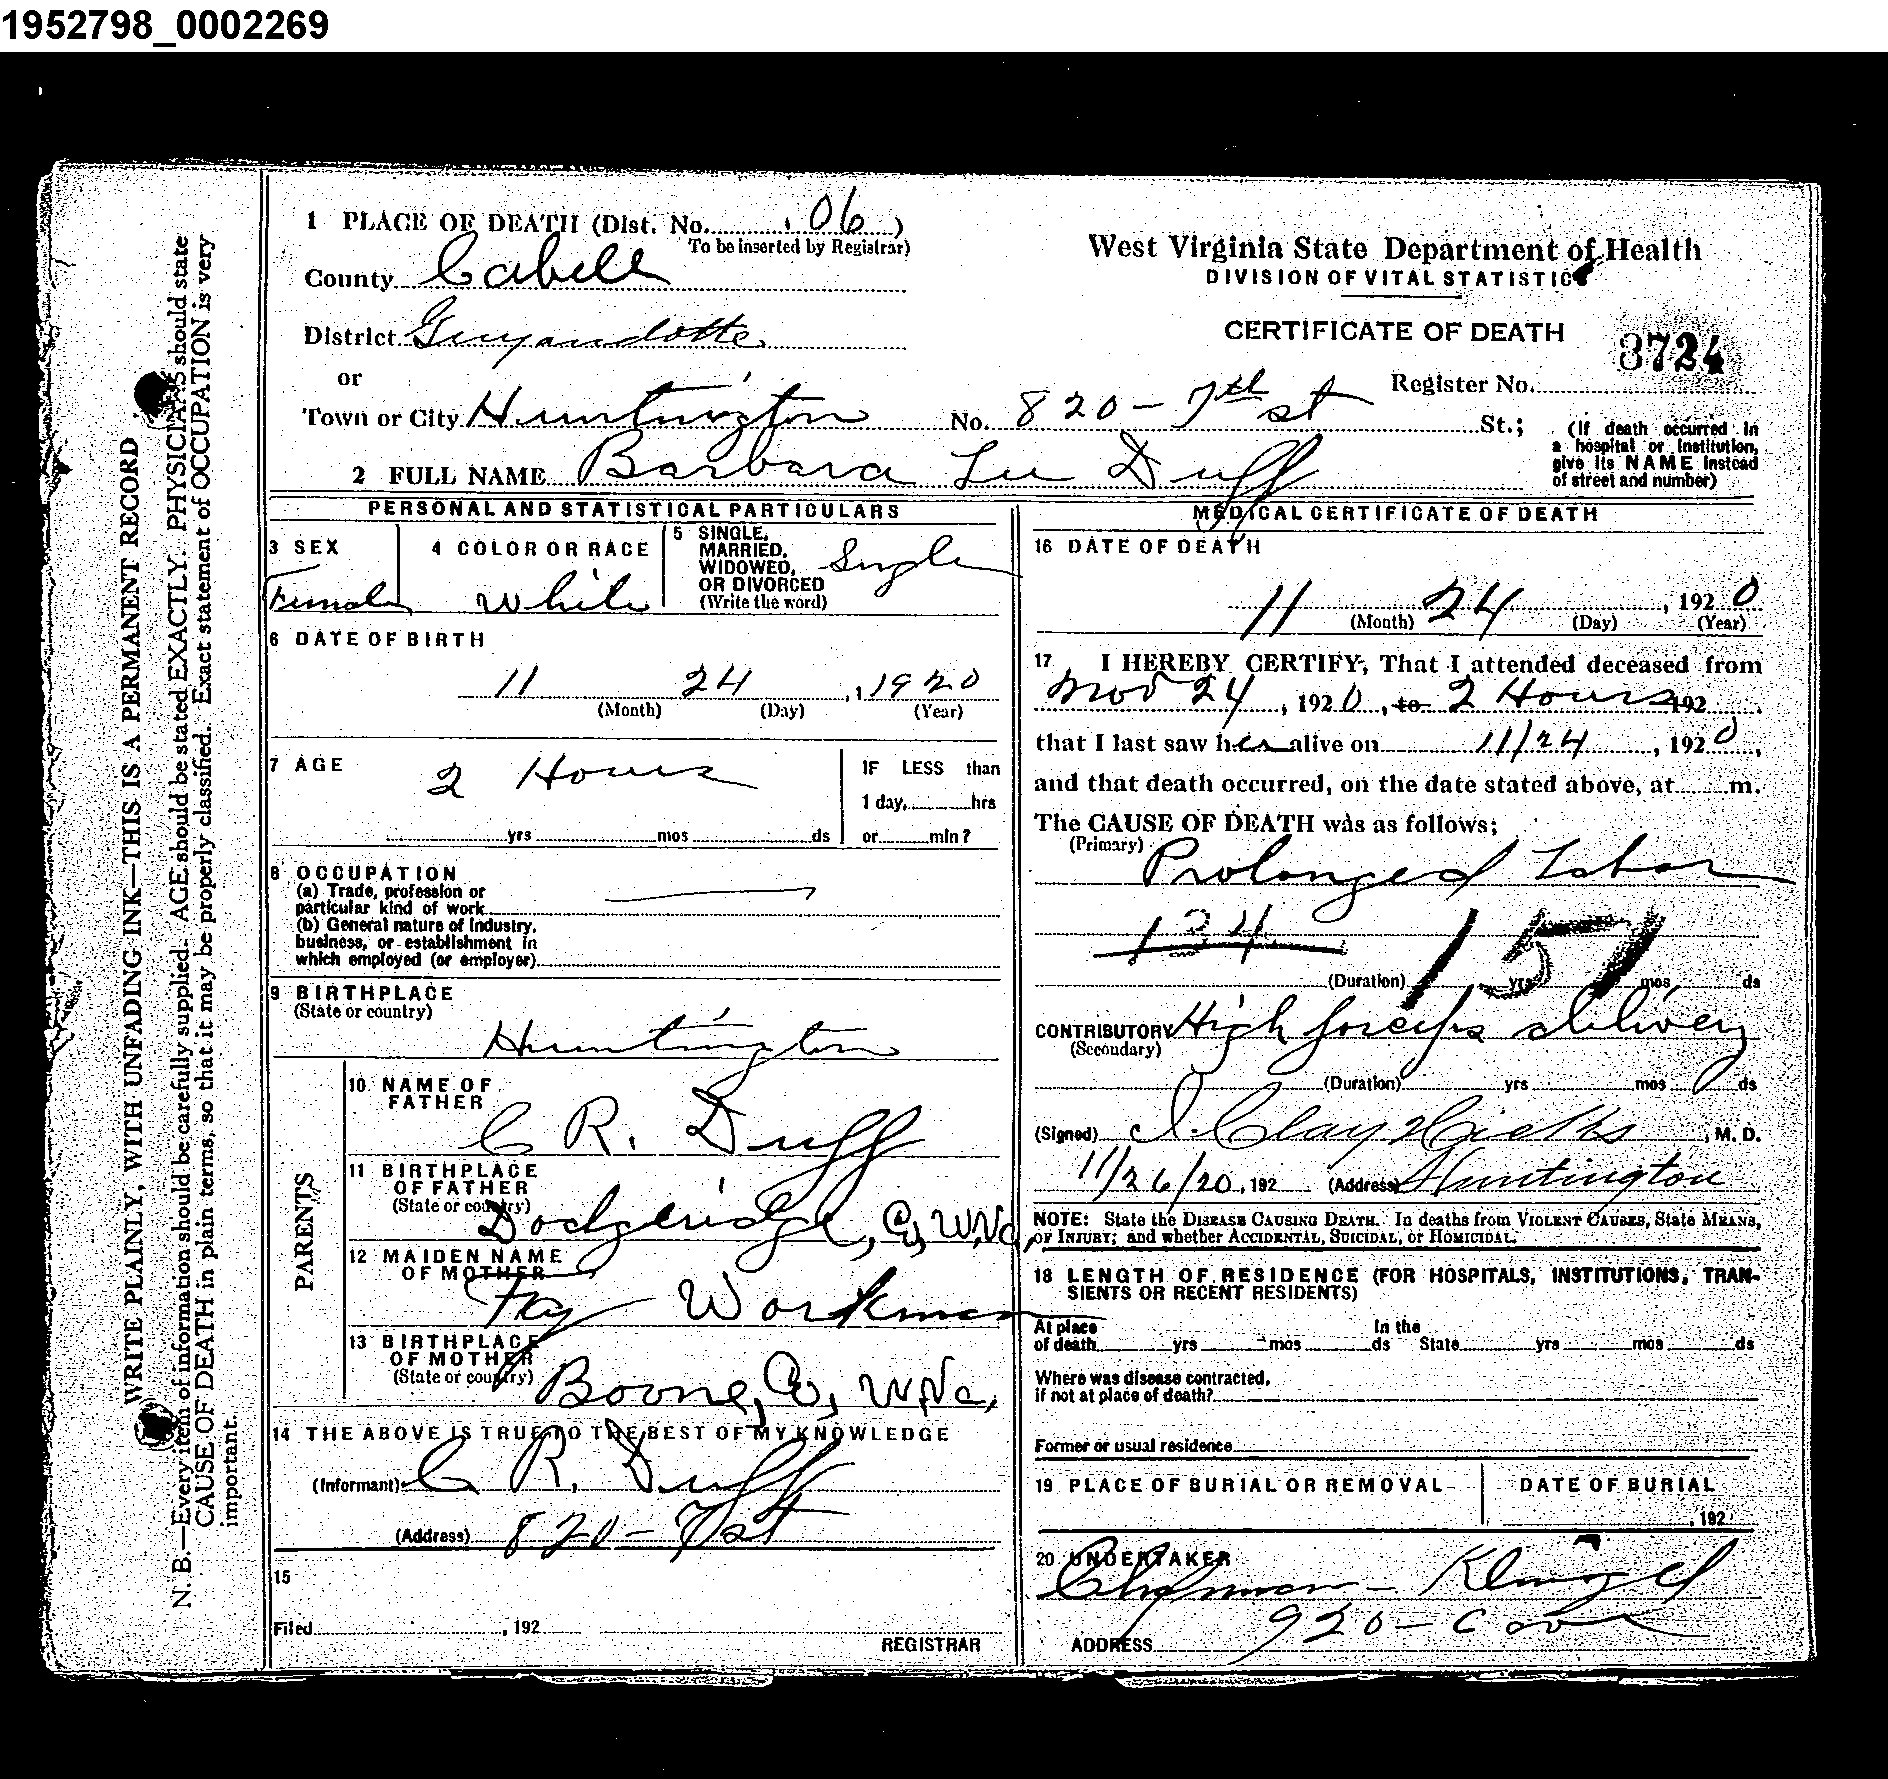 1952798_0002269
1 PLACE OF DEATH (Dist. No. 06 )
To be inserted by Registrar)
County Cabell
District Guyandotte
or
Town or City Huntington No. 820 - 7th st St.;
2 FULL NAME Barbara Lee Duff
West Virginia State Department of Health
DIVISION OF VITAL STATISTIC
CERTIFICATE OF DEATH
3724
Register No.
(If death occurred in
a hospital or institution,
give its NAME instead
of street and number)
PERSONAL AND STATISTICAL PARTICULARS
3 SEX
Female
4 COLOR OR RACE
White
5 SINGLE,
MARRIED,
WIDOWED,
OR DIVORCED
(Write the word)
Single
6 DATE OF BIRTH
11 24 , 1920
(Month) (Day) (Year)
7 AGE
2 Hours
yrs mos ds
IF LESS than
1 day, hrs
or min?
8 OCCUPATION
(a) Trade, profession or
particular kind of work
(b) General nature of Industry,
business, or establishment in
which employed (or employer)
9 BIRTHPLACE
(State or country)
Huntington
PARENTS
10 NAME OF
FATHER
C R. Duff
11 BIRTHPLACE
OF FATHER
(State or country)
Dodgeridge, Co, W.Va,
12 MAIDEN NAME
OF MOTHER
Fay Workman
13 BIRTHPLACE
OF MOTHER
(State or country)
Boone, Co, W.Va,
14 THE ABOVE IS TRUE TO THE BEST OF MY KNOWLEDGE
(Informant) C R. Duff
(Address) 820 - 7 st
15
Filed , 192
REGISTRAR
MEDICAL CERTIFICATE OF DEATH
16 DATE OF DEATH
11 24 , 1920
(Month) (Day) (Year)
17 I HEREBY CERTIFY, That I attended deceased from
Nov 24 , 1920 , to 2 Hours 192
that I last saw her alive on 11/24 , 1920 ,
and that death occurred, on the date stated above, at m.
The CAUSE OF DEATH was as follows;
(Primary) Prolonged Labor
134 157
(Duration) yrs mos ds
CONTRIBUTORY High forceps delivery
(Secondary)
(Duration) yrs mos ds
(Signed) I. Clay Hicks , M. D.
11/26/20 , 192 (Address) Huntington
NOTE: State the DISEASE CAUSING DEATH. In deaths from VIOLENT CAUSES, State MEANS,
OF INJURY; and whether ACCIDENTAL, SUICIDAL, or HOMICIDAL.
18 LENGTH OF RESIDENCE (FOR HOSPITALS, INSTITUTIONS, TRAN-
SIENTS OR RECENT RESIDENTS)
At place In the
of death yrs mos ds State yrs mos ds
Where was disease contracted,
if not at place of death?
Former or usual residence
19 PLACE OF BURIAL OR REMOVAL
DATE OF BURIAL
, 192
20 UNDERTAKER
Chapman - Klingel
ADDRESS 920 -
WRITE PLAINLY, WITH UNFADING INK—THIS IS A PERMANENT RECORD
N. B.—Every item of information should be carefully supplied. AGE should be stated EXACTLY. PHYSICIANS should state
CAUSE OF DEATH in plain terms, so that it may be properly classified. Exact statement of OCCUPATION is very
important.